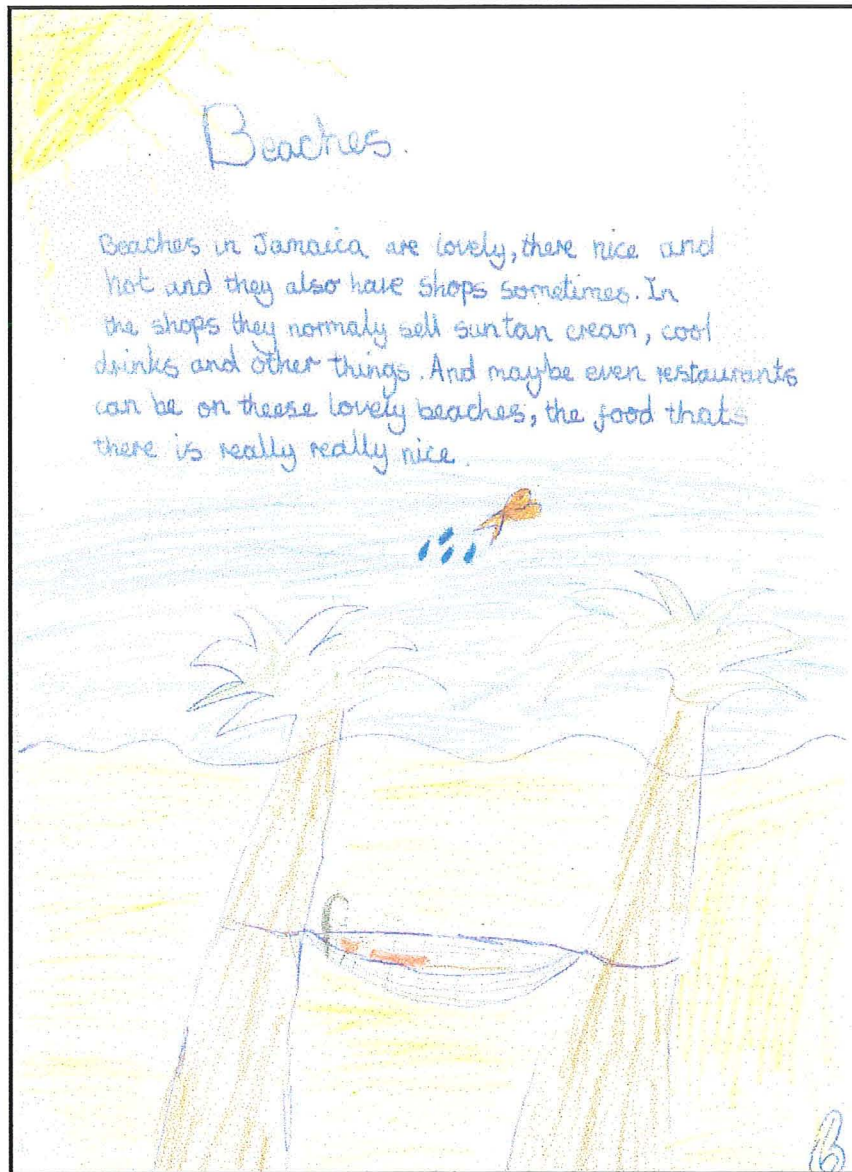 Beaches.
Beaches in Jamaica are lovely, there nice and
hot and they also have shops sometimes. In
the shops they normaly sell suntan cream, cool
drinks and other things. And maybe even restaurants
can be on theese lovely beaches, the food thats
there is really really nice.
6